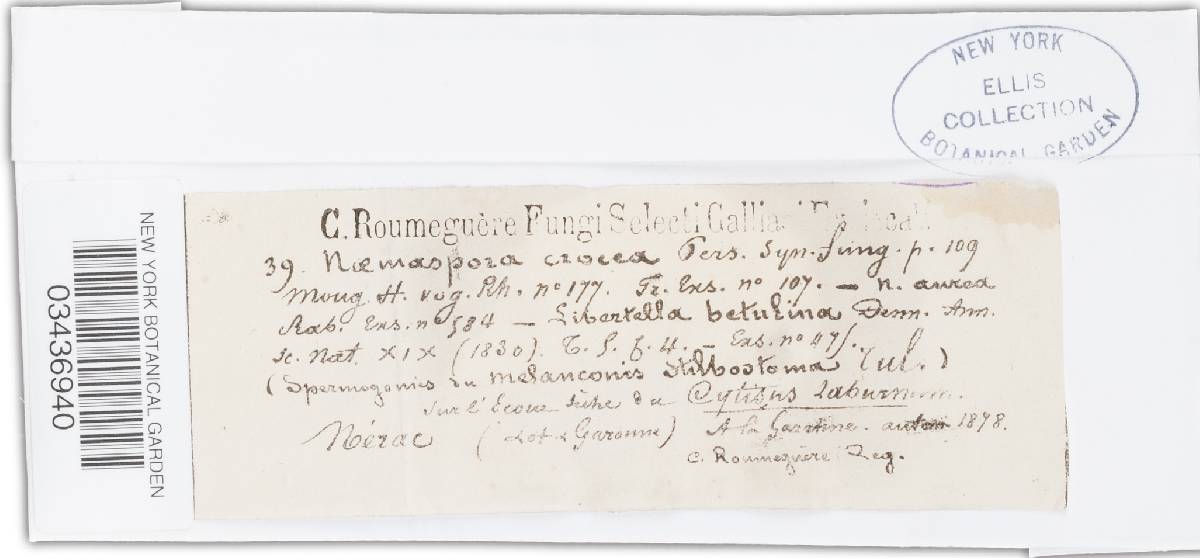 NEW YORK
ELLIS
COLLECTION
BOTANICAL GARDEN
NEW YORK BOTANICAL GARDEN
03436940
C. Roumeguère Fungi Selecti
39. Næmaspora crocea Pers. Syn. fung. p. 109
Moug. H. vog. Rh. nº 177. Fr. Exs. nº 107. — N. aurea
Rab. Exs. nº 584 — Libertella betulina Desm. Ann.
Sc. Nat. XIX (1830). T. 5. f. 4. — Exs. nº
(Spermogonies du Melanconis stilbostoma Tul.)
sur l'Écorce sèche du Cytisus Laburnum.
Nérac (Lot & Garonne) A la Garenne. 1878.
C. Roumeguère Leg.